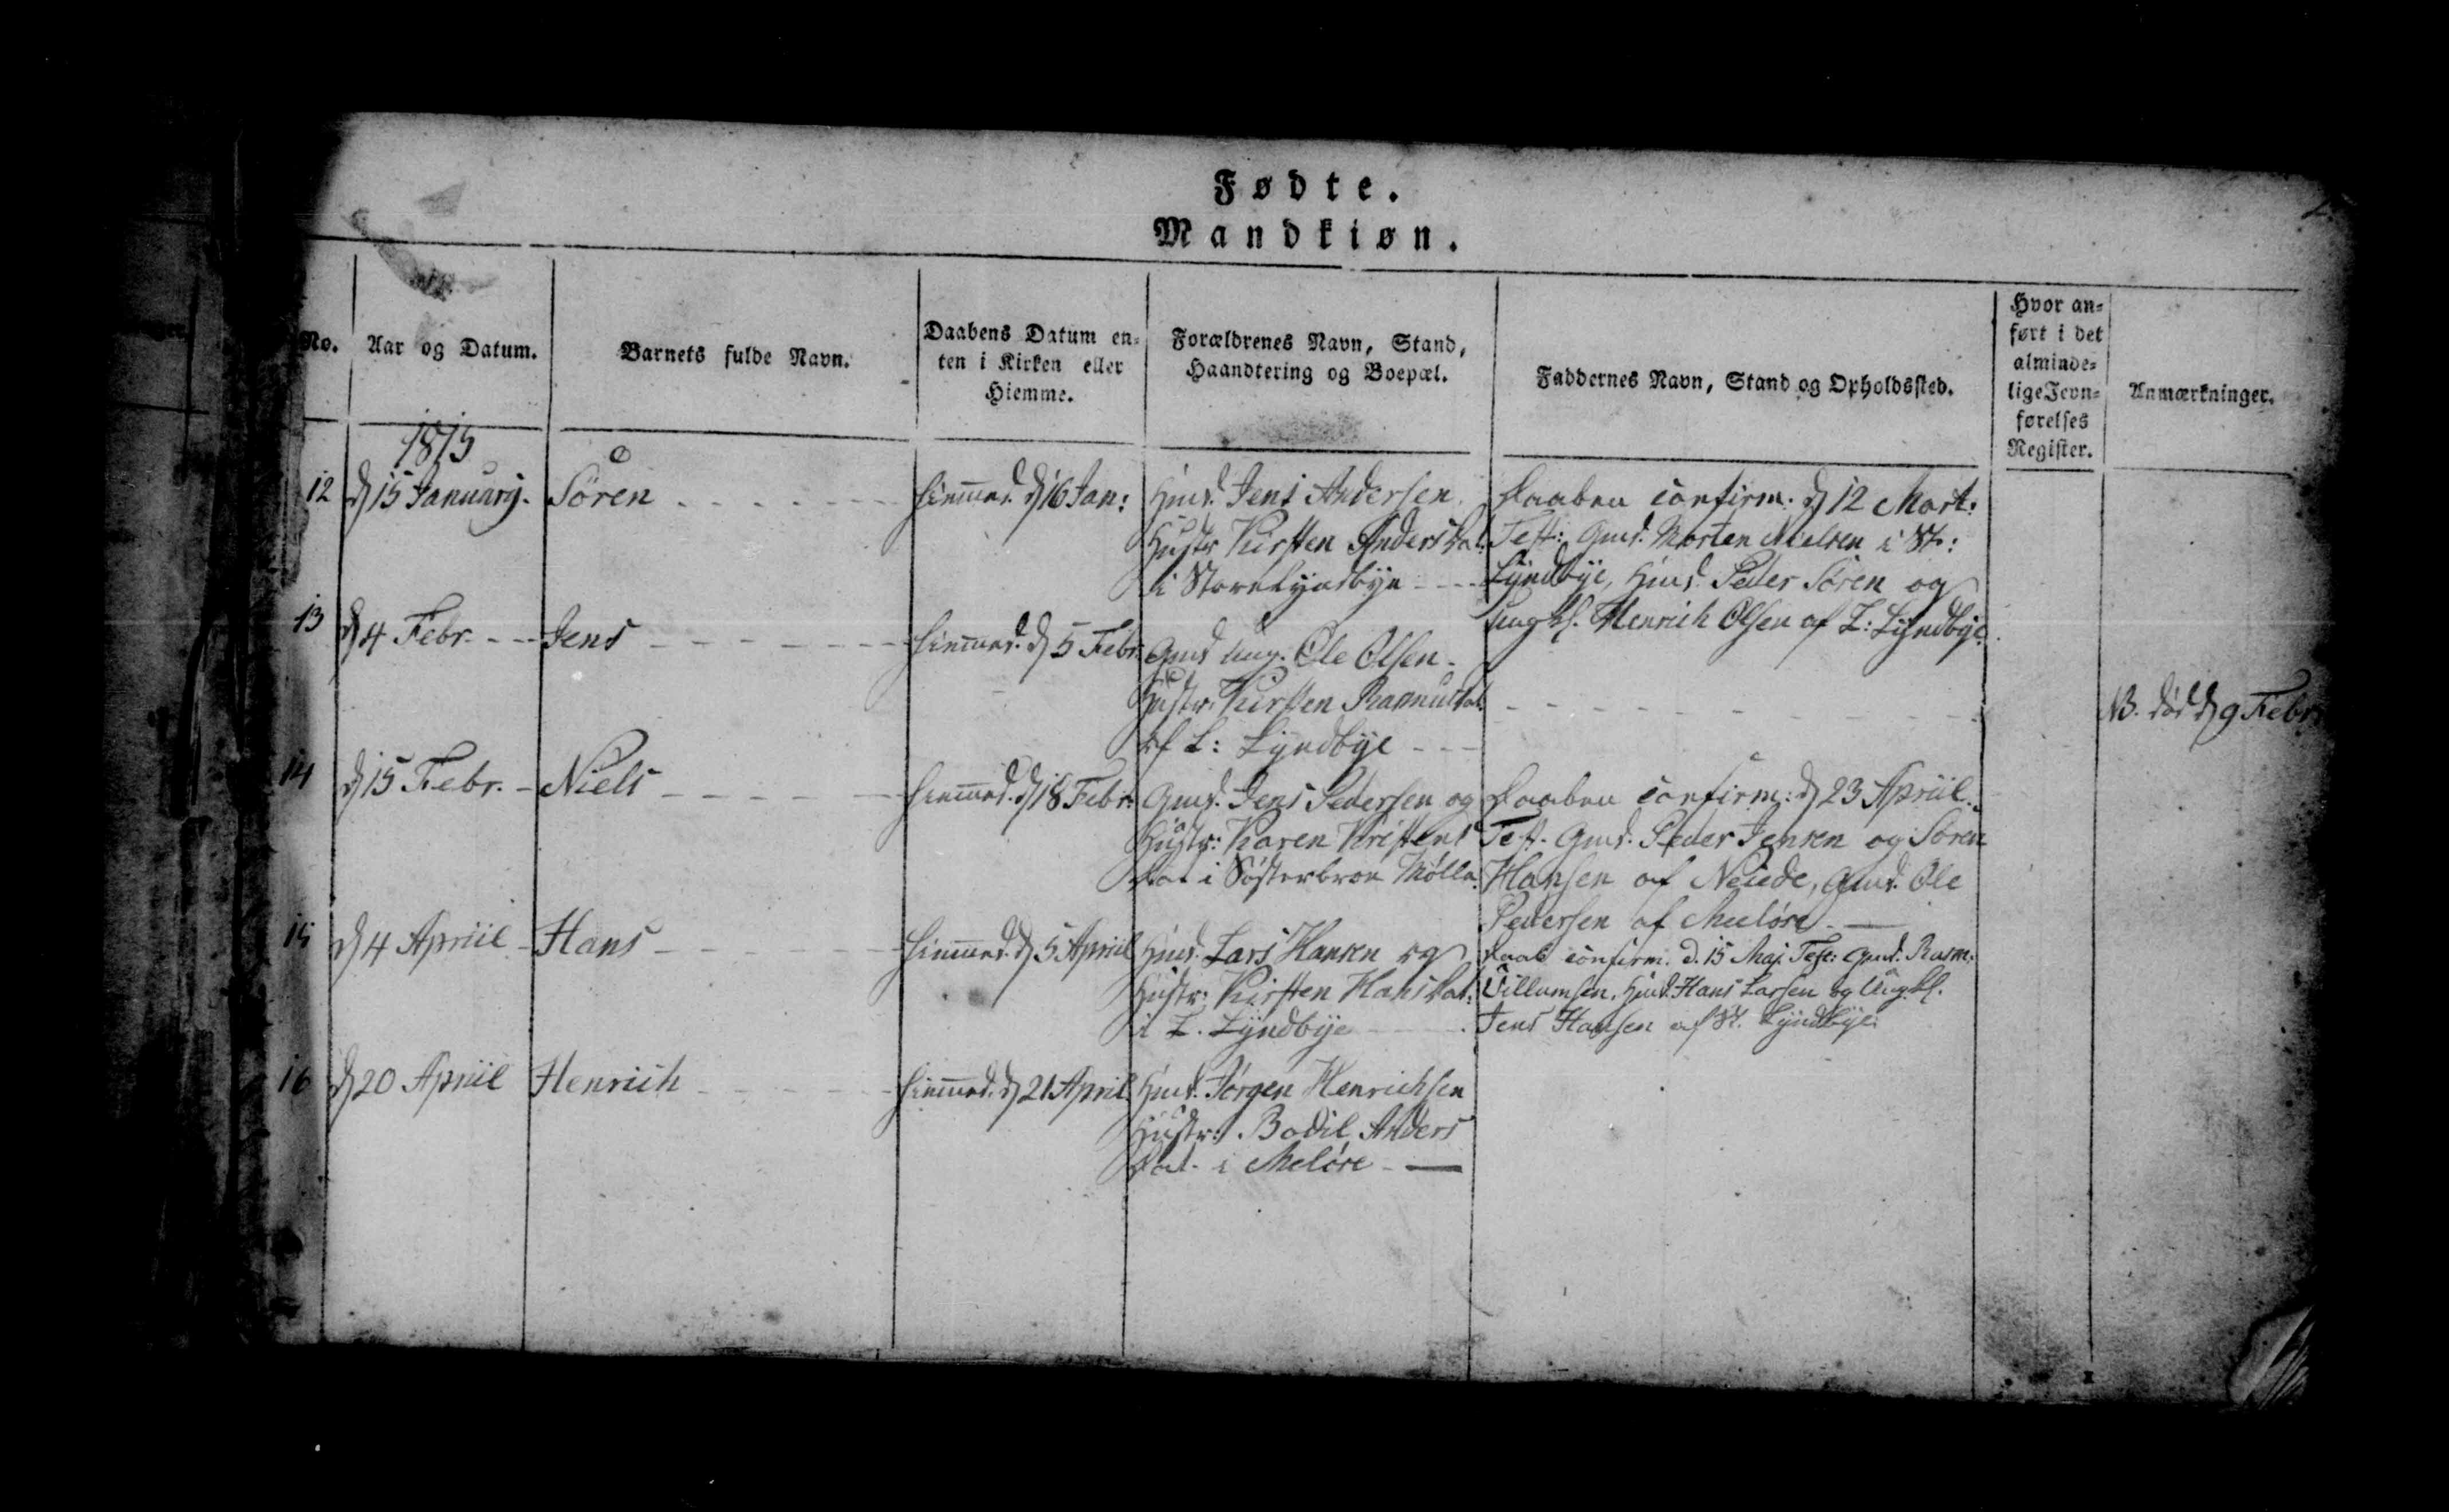 Fødte.
Mandkiøn.
No.
Aar og Datum.
Barnets fulde Navn.
Daabens Datum en-
ten i Kirken eller
Hiemme.
Forældrenes Navn, Stand,
Haandtering og Boepæl.
Faddernes Navn, Stand og Opholdssted.
Hvor an-
ført i det
alminde-
lige Jevn-
førelses
Register.
Anmærkninger.
1815
12
d 15 January.
Søren
hiemmed. d 16 Jan:
Huusd. Jens Andersen
Hustr Kirsten Andersdat:
i Store Lyndbye
Daaben confirm. d 12 Mart:
Test: Gmd. Morten Nielsen i St:
Lyndbye, Huusd. Peder Søren og
Ungkl. Henrich Olsen af L: Lyndbye.
13
d 4 Febr.
Jens
hiemmed. d 5 Febr.
Gmd Ung. Ole Olsen
Hustr. Kirsten Rasmusdat.
af L: Lyndbye
B. død d 9 Febr.
14
d 15 Febr.
Niels
hiemmed. d 18 Febr.
Gmd. Jens Pedersen og
Hustr: Karen Kristens
Dat i Søsterbroe Mølle.
Daaben confirm: d 23 Apriil.
Test. Gmd. Peder Jensen og Søren
Hansen af Neiede, Gmd. Ole
Pedersen af Meeløse
15
d 4 Apriil
Hans
hiemmed. d 5 Apriil
Huusd. Lars Hansen og
Hustr: Kirsten Hansdat:
i L. Lyndbye
Daab confirm. d. 15 Maj. Test: Gmd. Rasm:
Villumsen, Huusd. Hans Larsen og Ungkl.
Jens Hansen af St. Lyndbye.
16
d 20 Apriil
Henrich
hiemmed. d 21 April.
Huusd. Jørgen Henrichsen
Hustr: Bodil Anders
Dat. i Meløse